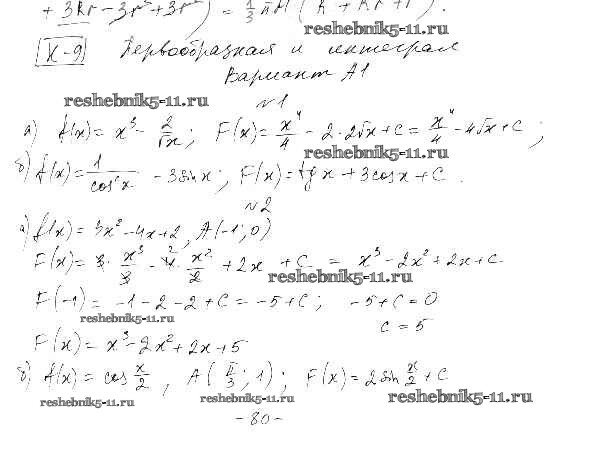 + 3Rr - 3r² + 3r² ) = 1/3 πH (R + Rr + r).
reshebnik5-11.ru
К-9 Первообразная и интеграл
Вариант А1
reshebnik5-11.ru
№1
а) f(x) = x³ - 2/√x; F(x) = x⁴/4 - 2·2√x + C = x⁴/4 - 4√x + C;
reshebnik5-11.ru
б) f(x) = 1/cos²x - 3sin x; F(x) = tg x + 3cos x + C.
№2
а) f(x) = 3x² - 4x + 2, A(-1; 0)
F(x) = 3·x³/3 - 4·x²/2 + 2x + C = x³ - 2x² + 2x + C
reshebnik5-11.ru
F(-1) = -1 - 2 - 2 + C = -5 + C; -5 + C = 0
reshebnik5-11.ru
C = 5
F(x) = x³ - 2x² + 2x + 5
б) f(x) = cos x/2, A(π/3; 1); F(x) = 2 sin x/2 + C
reshebnik5-11.ru reshebnik5-11.ru reshebnik5-11.ru
-80-